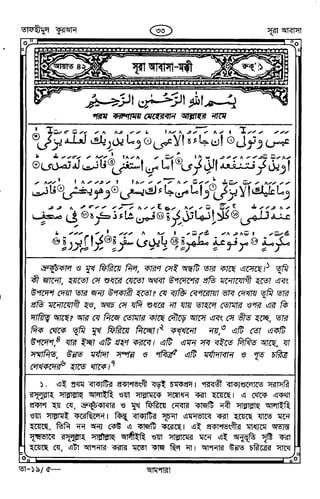 তাফহীমুল কুরআন
৩৩
সূরা আবাসা
আয়াত ৪২
সূরা আবাসা-মক্কী
রুকূ' ১
بِسْمِ اللهِ الرَّحْمٰنِ الرَّحِيْمِ
পরম করুণাময় মেহেরবান আল্লাহর নামে
عَبَسَ وَتَوَلّٰى ۙ اَنْ جَآءَهُ الْاَعْمٰى ۙ وَمَا يُدْرِيْكَ لَعَلَّهٗ يَزَّكّٰى ۙ
اَوْ يَذَّكَّرُ فَتَنْفَعَهُ الذِّكْرٰى ۙ اَمَّا مَنِ اسْتَغْنٰى ۙ فَاَنْتَ لَهٗ تَصَدّٰى ۙ
وَمَا عَلَيْكَ اَلَّا يَزَّكّٰى ۙ وَاَمَّا مَنْ جَآءَكَ يَسْعٰى ۙ وَهُوَ يَخْشٰى ۙ فَاَنْتَ
عَنْهُ تَلَهّٰى ۚ كَلَّآ اِنَّهَا تَذْكِرَةٌ ۚ فَمَنْ شَآءَ ذَكَرَهٗ ۘ فِيْ صُحُفٍ
مُّكَرَّمَةٍ ۙ مَّرْفُوْعَةٍ مُّطَهَّرَةٍ ۙ بِاَيْدِيْ سَفَرَةٍ ۙ كِرَامٍ بَرَرَةٍ ۙ
ভ্রূকুঁচকাল ও মুখ ফিরিয়ে নিল, কারণ সেই অন্ধটি তার কাছে এসেছে।১ তুমি
কী জানো, হয়তো সে শুধরে যেতো অথবা উপদেশের প্রতি মনোযোগী হতো এবং
উপদেশ দেয়া তার জন্য উপকারী হতো? যে ব্যক্তি বেপরোয়া ভাব দেখায় তুমি তার
প্রতি মনোযোগী হও, অথচ সে যদি শুধরে না যায় তাহলে তোমার ওপর এর কি
দায়িত্ব আছে? আর যে নিজে তোমার কাছে দৌড়ে আসে এবং সে ভীত হচ্ছে, তার
দিক থেকে তুমি মুখ ফিরিয়ে নিচ্ছো।২ কখ্খনো নয়,৩ এটি তো একটি
উপদেশ,৪ যার ইচ্ছা এটি গ্রহণ করবে। এটি এমন সব বইতে লিখিত আছে, যা
সম্মানিত, উন্নত মর্যাদা সম্পন্ন ও পবিত্র৫ এটি মর্যাদাবান ও পূত চরিত্র
লেখকদের৬ হাতে থাকে।৭
১. এই প্রথম বাক্যটির প্রকাশভংগী বড়ই চমকপ্রদ। পরবর্তী বাক্যগুলোতে সরাসরি
রসূলুল্লাহ সাল্লাল্লাহু আলাইহি ওয়া সাল্লামকে সম্বোধন করা হয়েছে। এ থেকে একথা
প্রকাশ হয় যে, ভ্রূকুঁচকাবার ও মুখ ফিরিয়ে নেবার কাজটি নবী সাল্লাল্লাহু আলাইহি
ওয়া সাল্লামই করেছিলেন। কিন্তু বাক্যটির সূচনা এমনভাবে করা হয়েছে যাতে মনে
হয়েছে, তিনি নন অন্য কেউ এ কাজটি করেছে। এই প্রকাশভংগীর মাধ্যমে অত্যন্ত
সূক্ষ্মভাবে রসূলুল্লাহ সাল্লাল্লাহু আলাইহি ওয়া সাল্লামের মনে এই অনুভূতি সৃষ্টি করা
হয়েছে যে, এটা আপনার করার মতো কাজ ছিল না। আপনার উন্নত চরিত্রের সাথে
তা-১৯/৫—
আমপারা